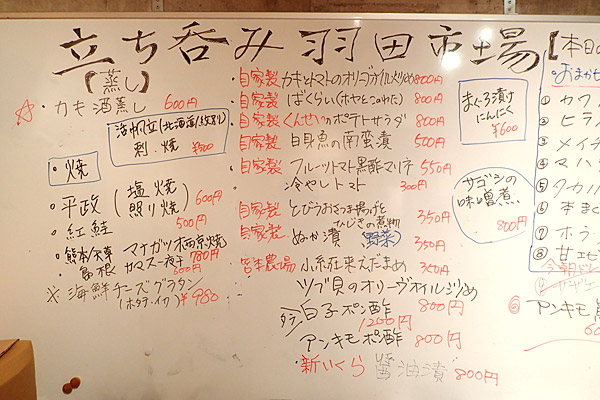 立ち呑み羽田市場
【本日の
【蒸し】
☆・カキ酒蒸し 600円
活帆立(北海道/紋別)
刺・焼 ¥500
・焼
・平政(塩焼 照り焼) 600円
・紅鮭 500円
・熊本/天草 マナガツオ西京焼 780円
・島根 カマス一夜干 500円
※海鮮チーズグラタン
(ホタテ・イカ) ¥980
・自家製 カキとトマトのオリーブオイル漬め 800円
・自家製 ばくらい(ホヤとこのわた) 800円
・自家製 くんせいのポテトサラダ 800円
自家製 白身魚の南蛮漬 500円
・自家製 フルーツトマト黒酢マリネ 550円
冷やしトマト 300円
・自家製 とびうおさつま揚げと
ひじきの煮物 350円
・自家製 ぬか漬(野菜) 350円
・宮本農場 小糸在来えだまめ 350円
ツブ貝のオリーヴオイル漬め 800円
・白子ポン酢 1200円
アンキモポン酢 800円
・新いくら醤油漬 800円
まぐろ漬け
にんにく
¥600
サゴシの
味噌煮
800円
・おまかせ
① カワ
② ヒラ
③ メイチ
④ マハ
⑧ 甘エビ
⑥ アンキモ